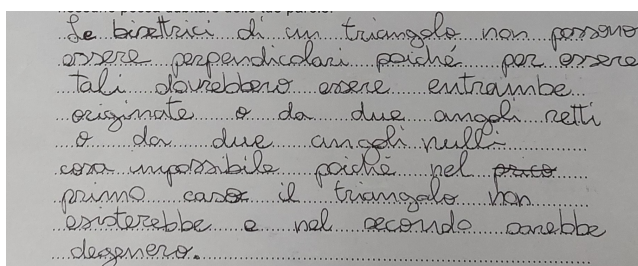 Le bisettrici di un triangolo non possono
essere perpendicolari poiché per essere
tali dovrebbero essere entrambe
originate o da due angoli retti
o da due angoli nulli
cosa impossibile poiché nel
primo caso il triangolo non
esisterebbe e nel secondo sarebbe
degenero.